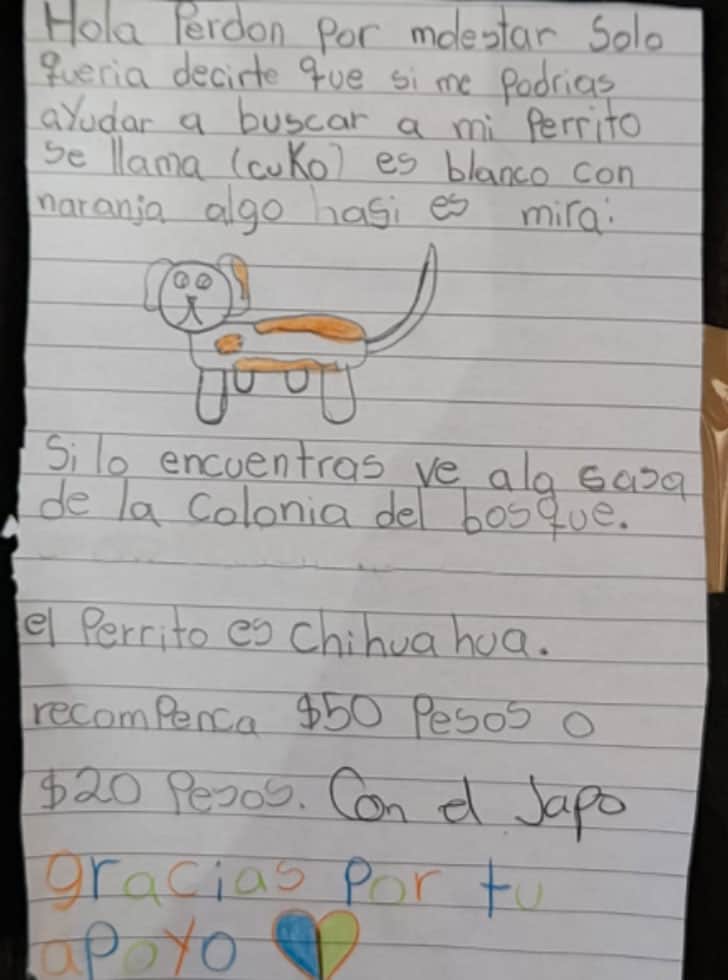 Hola Perdon por molestar Solo
queria decirte que si me podrias
ayudar a buscar a mi Perrito
se llama (cuko) es blanco con
naranja algo hasi es mira:
Si lo encuentras ve ala casa
de la Colonia del bosque.
el Perrito es chihuahua.
recomPenca $50 Pesos o
$20 Pesos. Con el Japo
gracias por tu
apoyo